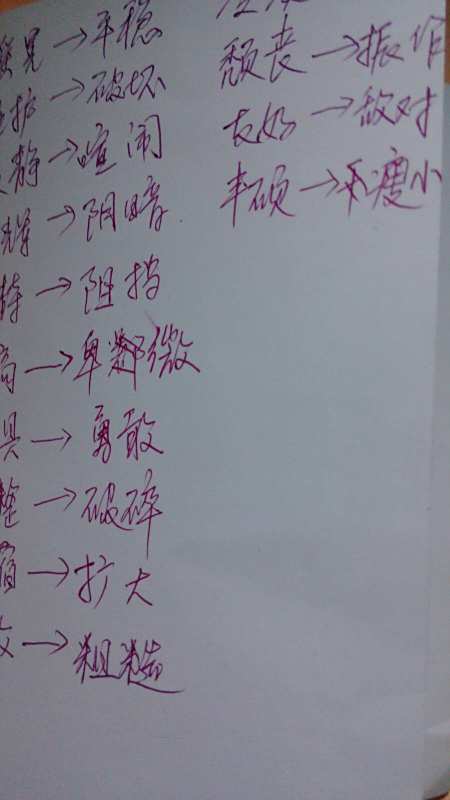 晃→平稳
护→破坏
静→喧闹
→阴暗
持→阻挡
高→卑微
具→勇敢
整→破碎
宿→扩大
→粗糙
颓丧→振作
友好→敌对
丰硕→瘦小